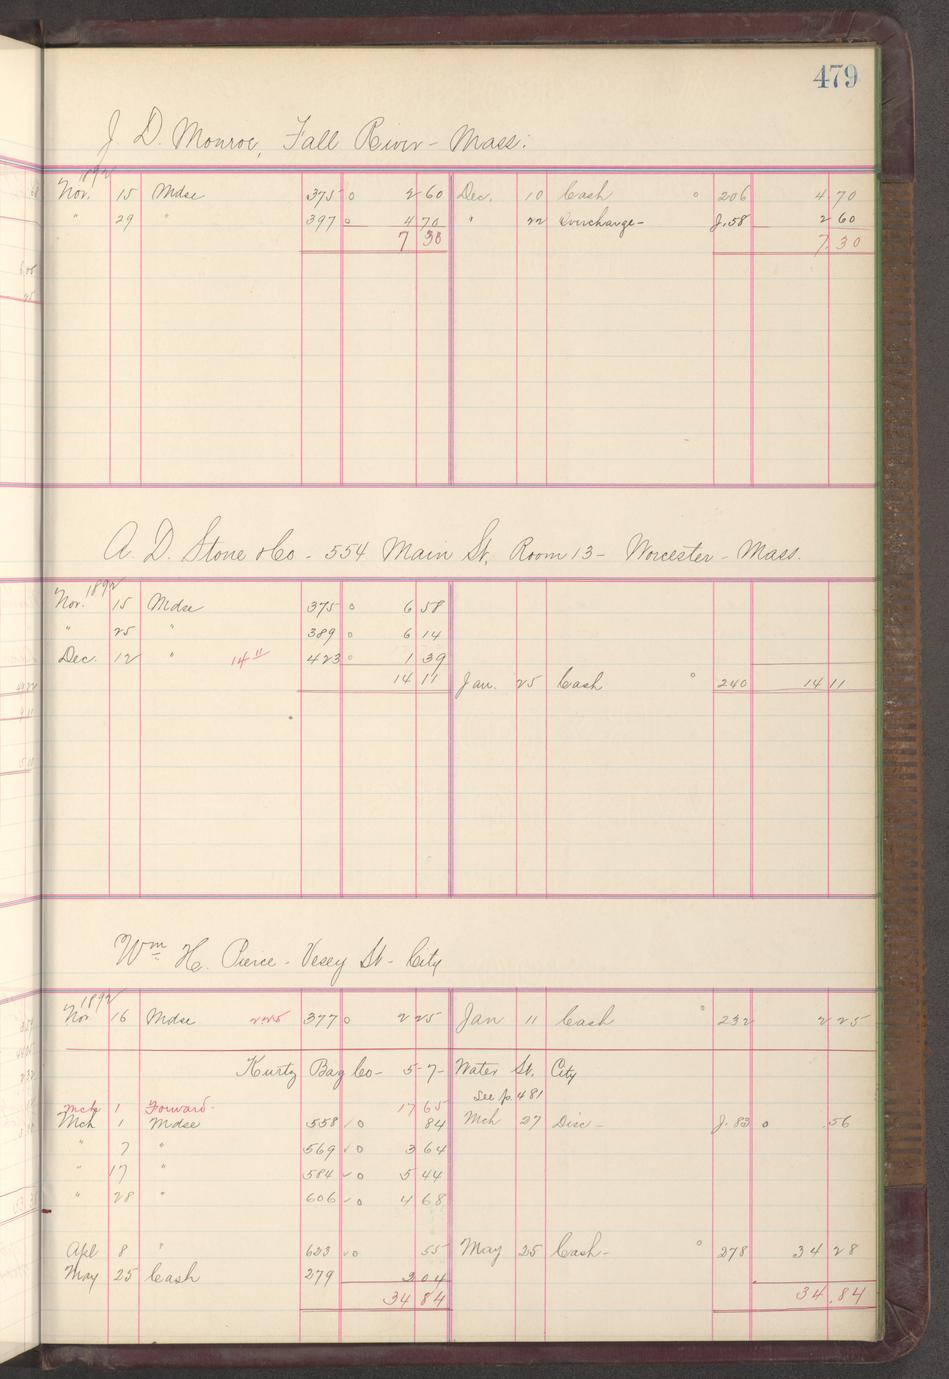 479
J. D. Monroe, Fall River - Mass.
1892
Nov. 15 Mdse 375 0 2 60 Dec. 10 Cash 0 206 4 70
" 29 " 397 0 4 70 " 22 Overcharge - J. 58 2 60
7 30 7 30
A. D. Stone & Co - 554 Main St, Room 13 - Worcester - Mass.
1892
Nov. 15 Mdse 375 0 6 58
" 25 " 389 0 6 14
Dec. 12 " 14 11 423 0 1 39
14 11 Jan. 25 Cash 0 240 14 11
Wm H. Pierce - Vesey St - City
1892
Nov 16 Mdse 2 25 377 0 2 25 Jan 11 Cash 0 232 2 25
Kurtz Bag Co - 5-7 - Water St. City
See p. 481
Mch 1 Forward - 17 65
Mch 1 Mdse 558 ✓ 0 84 Mch 27 Disc - J. 83 0 .56
" 7 " 569 ✓ 0 3 64
" 17 " 584 ✓ 0 5 44
" 28 " 606 ✓ 0 4 68
Apl 8 " 623 ✓ 0 55 May 25 Cash - 0 278 34 28
May 25 Cash 279 2 04
34 84 34.84